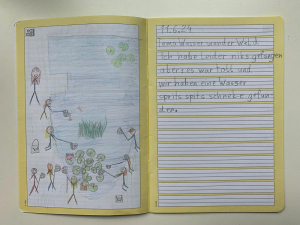 11.6.24
Lena Wasser wander Wald
Ich habe Leider niks gefangen
aber es war tohl und
wir haben eine Wasser
sprits spits schneke gefun
den.